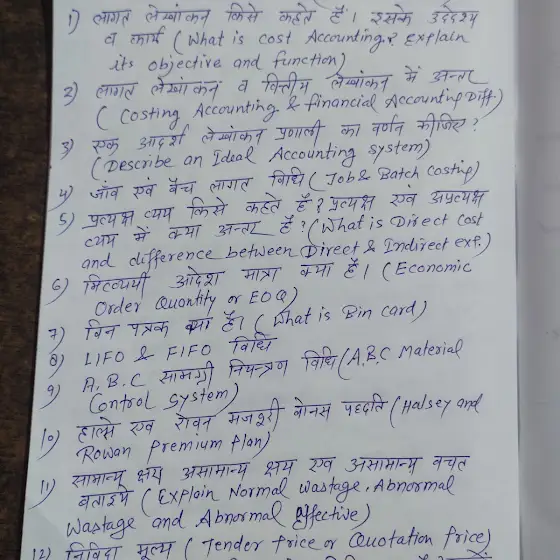 1) लागत लेखांकन किसे कहते हैं। इसके उद्देश्य
व कार्य (What is cost Accounting? Explain
its objective and function)
2) लागत लेखांकन व वित्तीय लेखांकन में अन्तर
(Costing Accounting & financial Accounting Diff.)
3) एक आदर्श लेखांकन प्रणाली का वर्णन कीजिए?
(Describe an Ideal Accounting system)
4) जॉब एवं बैच लागत विधि (Job & Batch costing)
5) प्रत्यक्ष व्यय किसे कहते हैं? प्रत्यक्ष एवं अप्रत्यक्ष
व्यय में क्या अन्तर है? (What is Direct Cost
and difference between Direct & Indirect exp.)
6) मितव्ययी आदेश मात्रा क्या है। (Economic
Order Quantity or EOQ)
7) बिन पत्रक क्या है। (What is Bin card)
8) LIFO & FIFO विधि
9) A.B.C सामग्री नियन्त्रण विधि (A.B.C Material
Control System)
10) हाल्से एवं रोवन मजदूरी बोनस पद्दति (Halsey and
Rowan Premium Plan)
11) सामान्य क्षय असामान्य क्षय एवं असामान्य बचत
बताइये (Explain Normal Wastage, Abnormal
Wastage and Abnormal Effective)
12) निविदा मूल्य (Tender Price or Quotation Price)